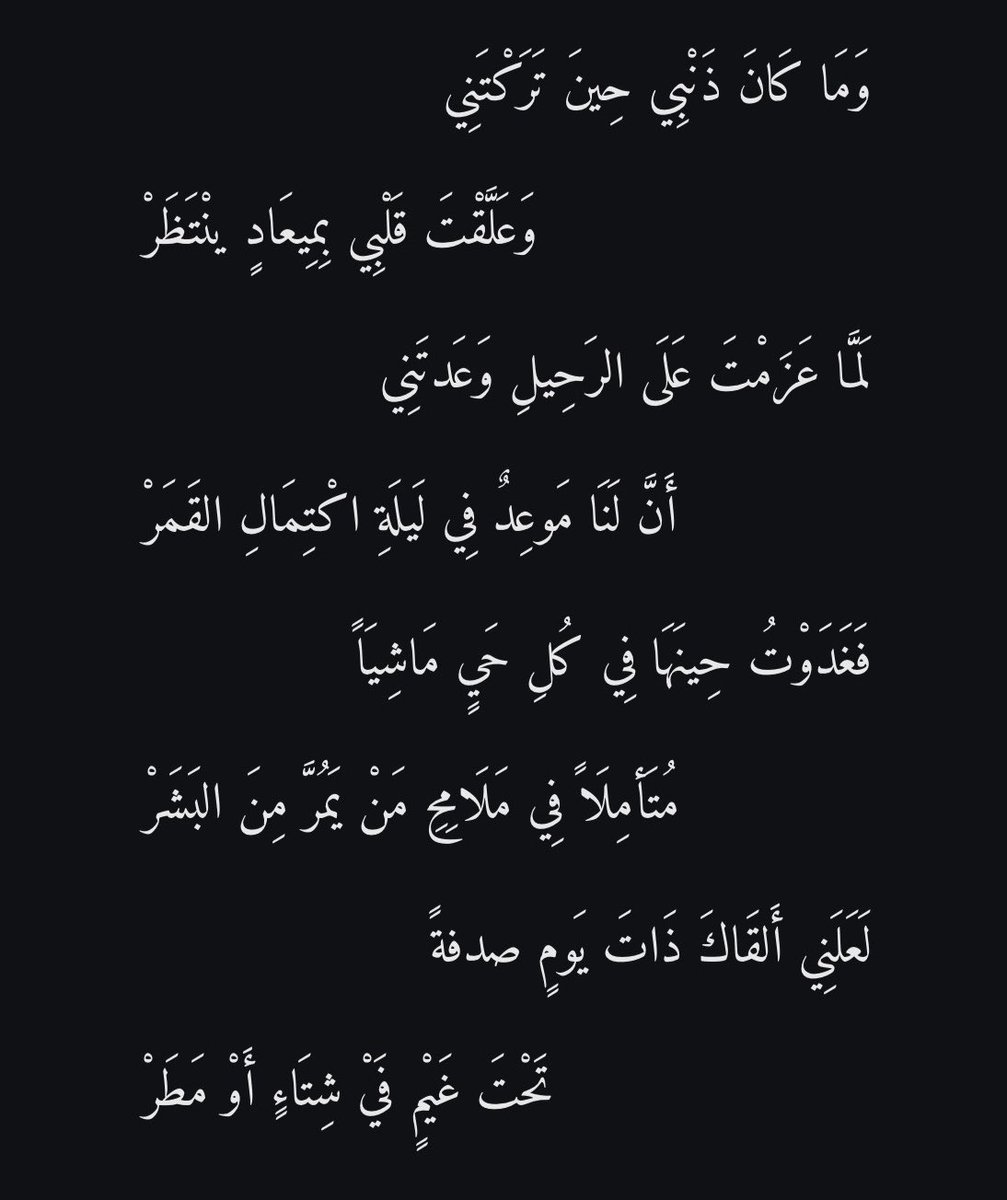 وَمَا كَانَ ذَنْبِي حِينَ تَرَكْتَنِي
وَعَلَّقْتَ قَلْبِي بِمِيعَادٍ يِنْتَظَرْ
لَمَّا عَزَمْتَ عَلَى الرَحِيلِ وَعَدتَنِي
أَنَّ لَنَا مَوعِدٌ فِي لَيلَةِ اكْتِمَالِ القَمَرْ
فَغَدَوْتُ حِينَهَا فِي كُلِ حَيٍ مَاشِيَاً
مُتَأمِلَاً فِي مَلَامِحِ مَنْ يَمُرَّ مِنَ البَشَرْ
لَعَلَنِي أَلقَاكَ ذَاتَ يَومٍ صدفةً
تَحْتَ غَيْمٍ فَيْ شِتَاءٍ أَوْ مَطَرْ